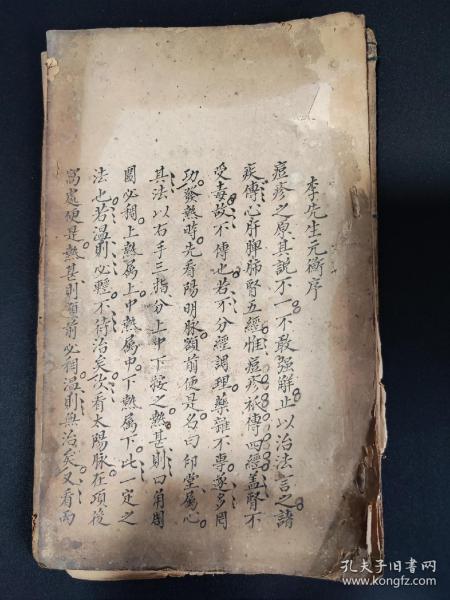 李先生元衡序
痘疹之原其説不一不敢强解止以治法言之諸
疾傳心肝脾肺腎五經惟痘疹祇傳四經盖腎不
受毒故不傳也若不分經調理藥雜不專遂多罔
功發熱時先看陽明脉顖前便是名曰印堂屬心
其法以右手三指分上中下按之熱甚則口角周
圍必稠上熱屬上中熱屬中下熱屬下此一定之
法也若温則必輕不待治矣次看太陽脉在項後
窩處便是熱甚則顖前必稠温則無治矣又看兩
孔夫子旧书网